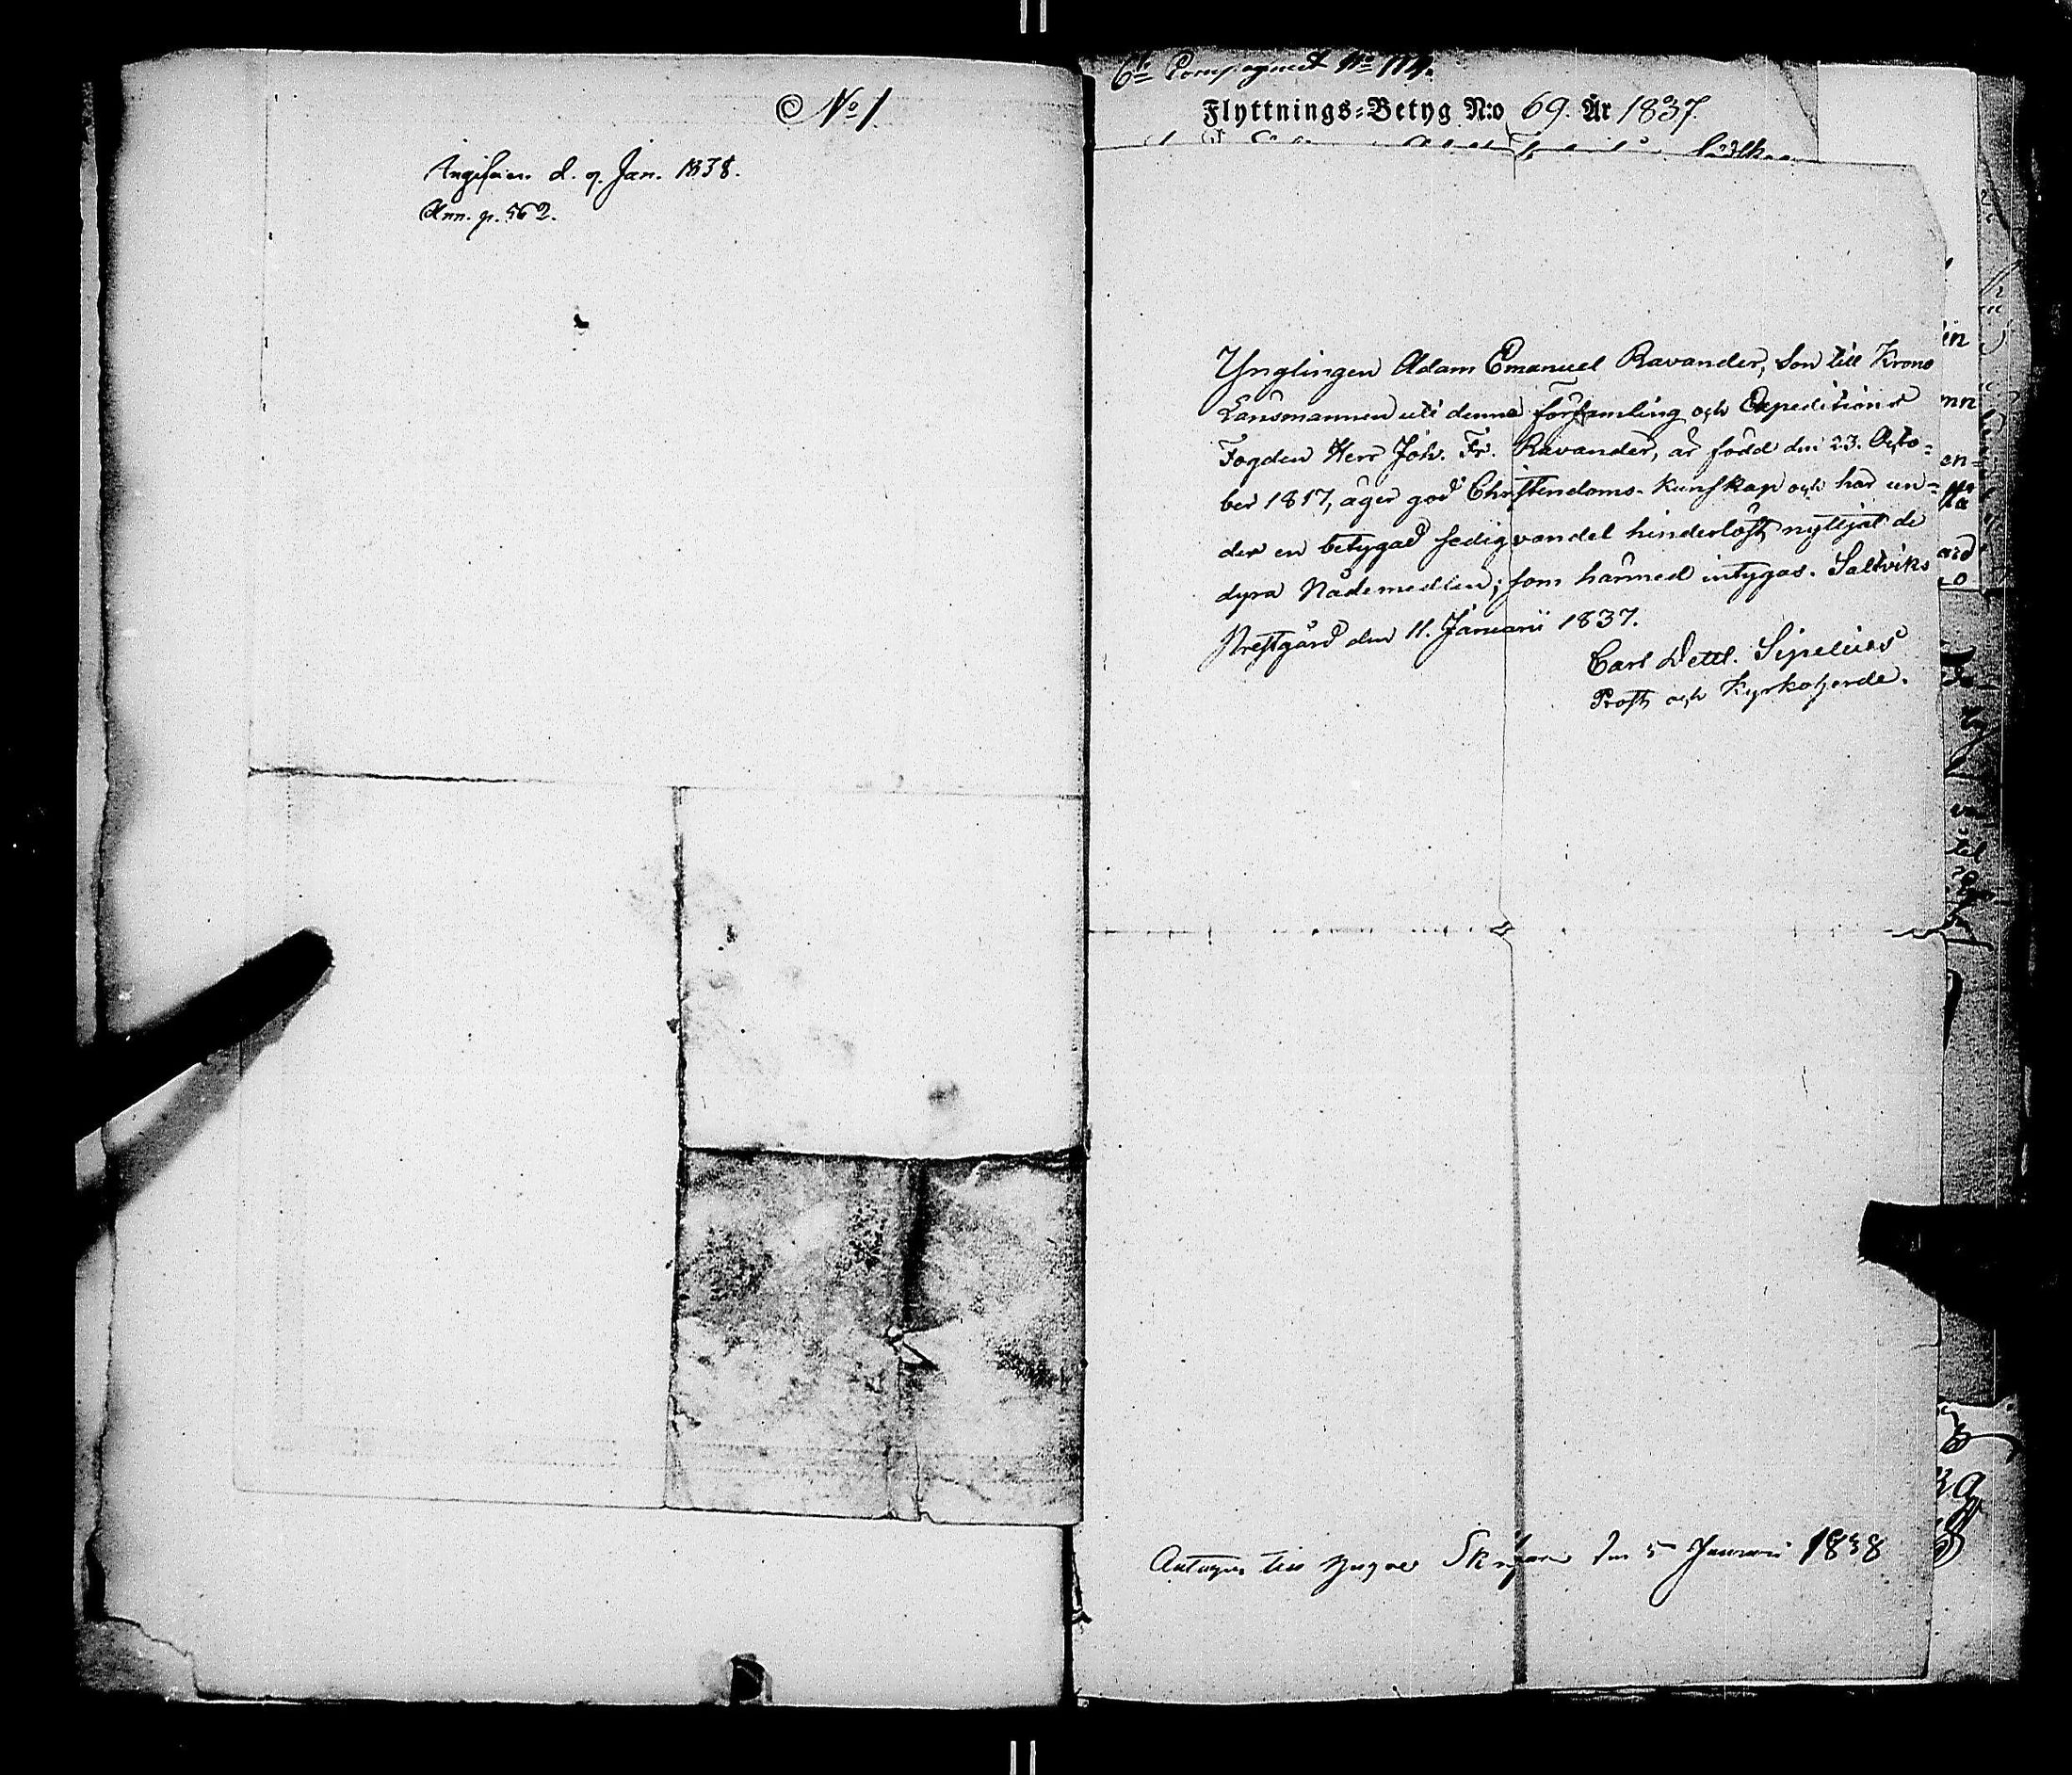 No 1
d. 9. Jan. 1838.
Ann. p. 562.
6te Compagniet No 114.
Flyttnings-Betyg N:o 69. År 1837.
Ynglingen Adam Emanuel Ravander, Son till Krono
Länsmannen uti denna församling och Expeditions
Fogden Herr Joh. Fr. Ravander, är född den 23. Octo-
ber 1817, äger god Christendoms-kunskap och har un-
der en betygad sedig vandel hinderlöst nyttjat de
dyra Nådemedlen; som härmed intygas. Saltviks
Prestgård den 11. Januarii 1837.
Carl Dettl. Sipelius
Prost och Kyrkoherde.
Antagen till Skrifvare den 5 Januari 1838